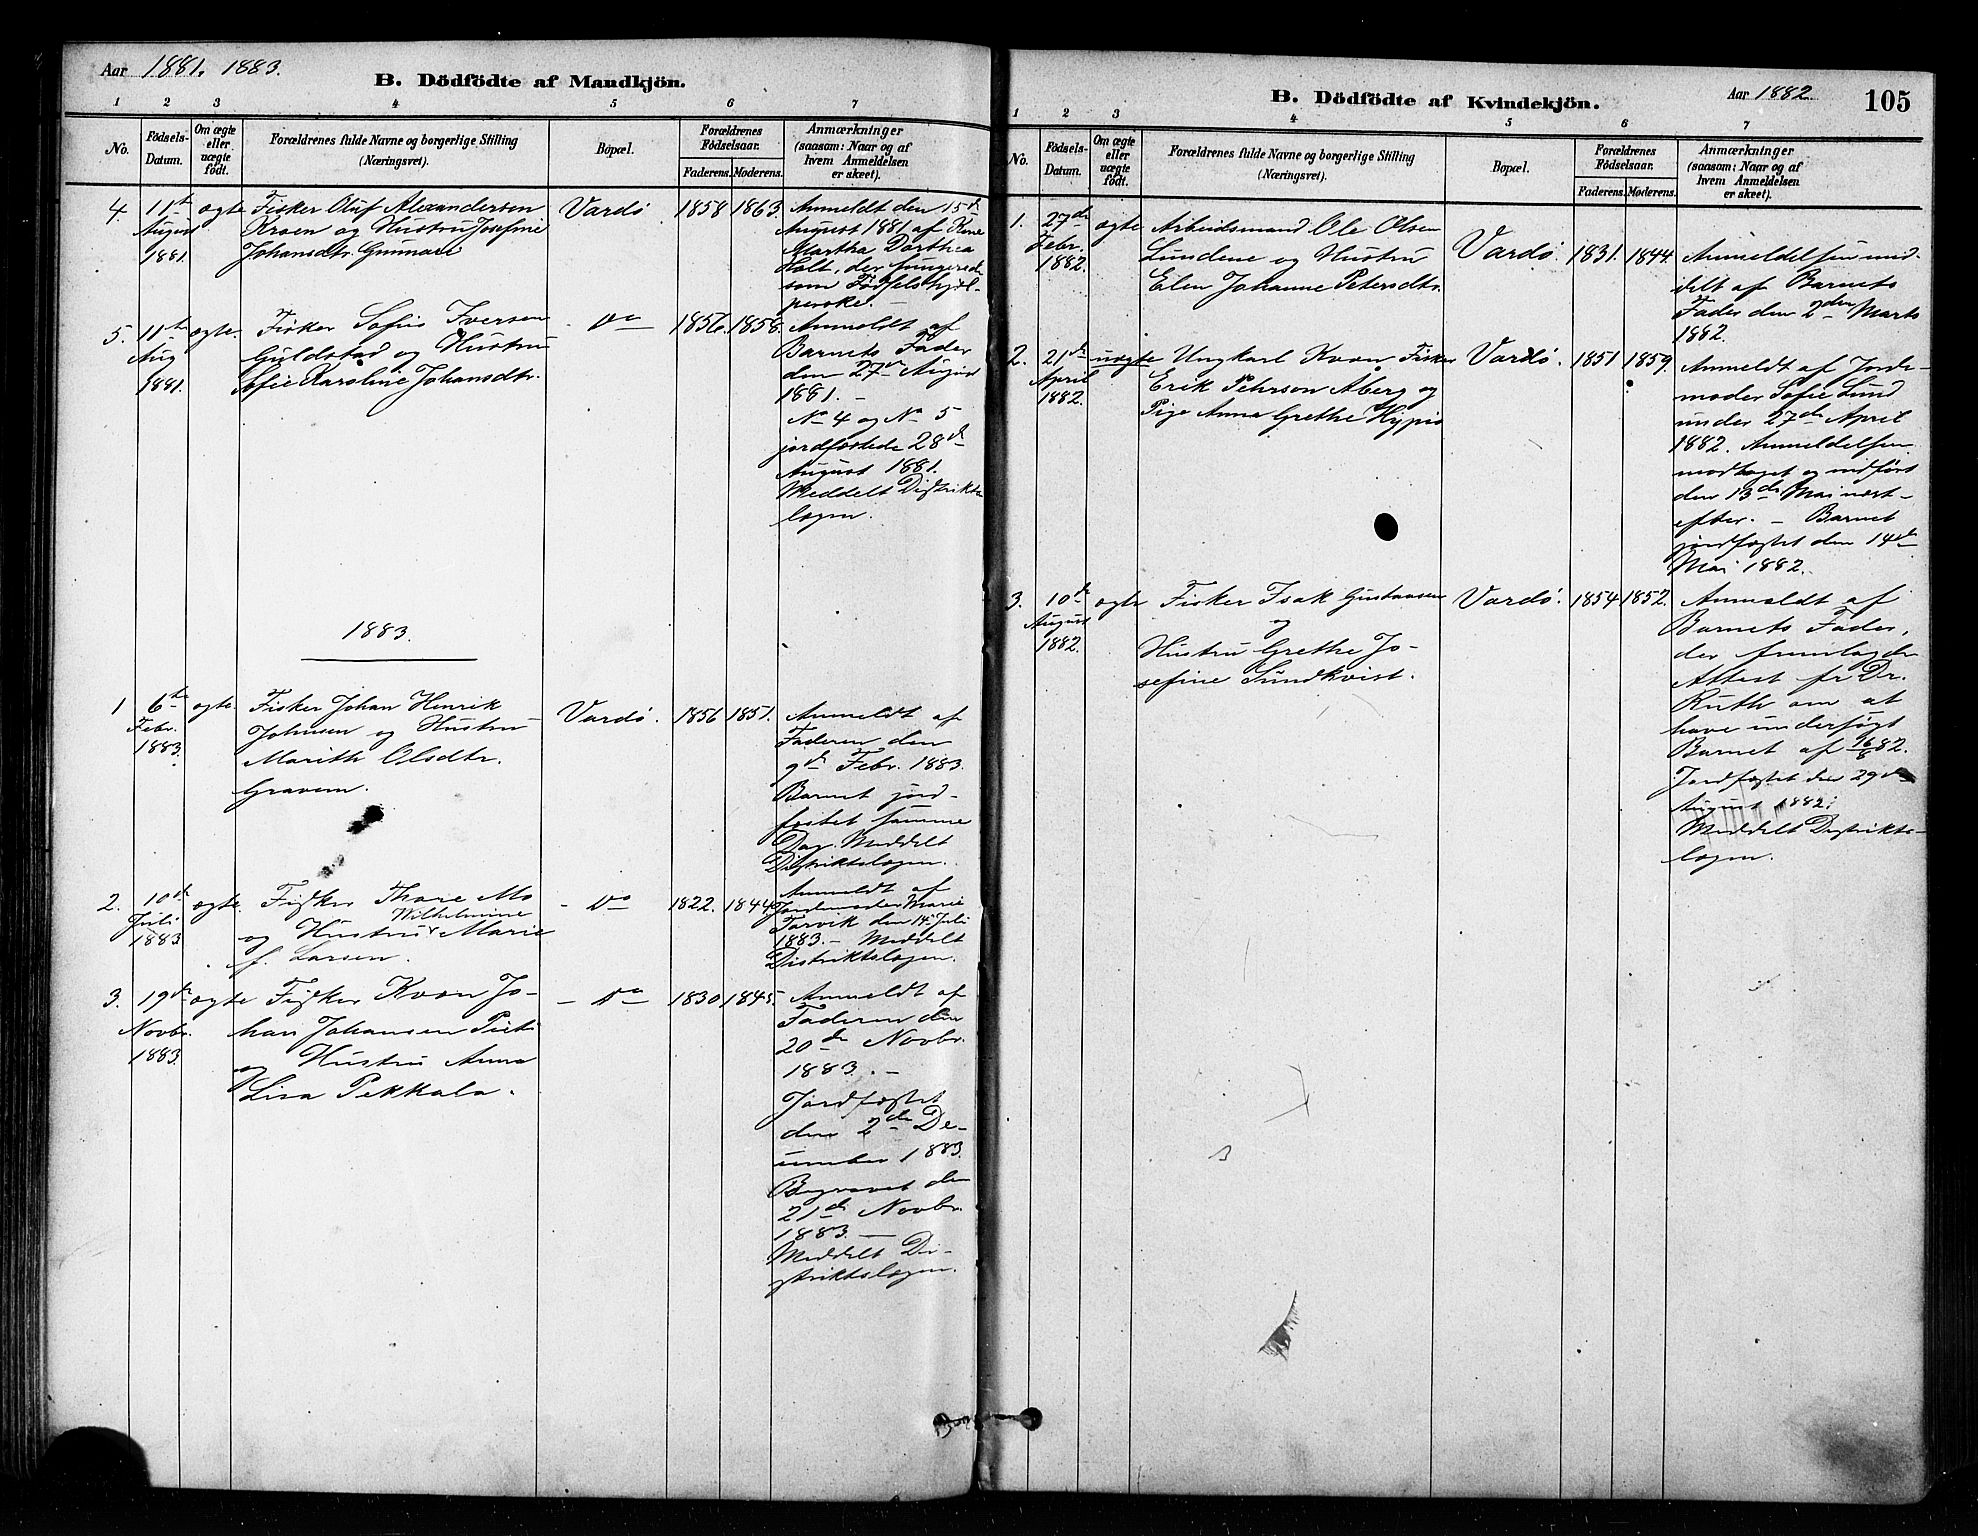 Aar 1881. 1883.
B. Dödfödte af Mandkjön.
1 2 3 4 5 6 7
No. Födsels-Datum. Om ægte eller uægte födt. Forældrenes fulde Navne og borgerlige Stilling (Næringsvei). Bopæl. Forældrenes Födselsaar. Faderens. Moderens. Anmærkninger (saasom: Naar og af hvem Anmeldelsen er skeet).
4 11te August 1881. ægte Fisker Oluf Alexandersen
Kroen og Hustru Josefine
Johansdtr.
Vardø 1858 1863.
Anmeldt den 15de
August 1881 af Kone
Martha Dorthea
Holt, der fungerede
som Fødselshjæl-
perske. —
5. 11te Aug 1881. ægte. Fisker Sofus Iversen
Guldstad og Hustru
Sofie Karoline Johansdtr.
- Do 1856. 1858.
Anmeldt af
Barnets Fader
den 27de August
1881. —
No 4 og No 5
jordfæstede 28de
August 1881.
Meddelt Distrikts
lægen.
1883.
1 6te Febr. 1883. ægte. Fisker Johan Henrik
Johnsen og Hustru
Marith Olsdtr.
Gravem.
Vardø. 1856 1851.
Anmeldt af
Faderen den
9de Febr. 1883.
Barnet jord-
fæstet samme
Dag. Meddelt
Distriktslægen.
2. 10de Juli 1883 ægte. Fisker Thore Mo
og Hustru Wilhelmine Marie
f. Larsen.
- Do 1822. 1844
Anmeldt af
Jordemoder Marie
Torvik den 14de Juli
1883. — Meddelt
Distriktslægen.
3. 19de Novbr. 1883 ægte Fisker Kvæn Jo-
han Johansen
og Hustru Anna
Lisa Pekkala.
- Do 1830 1845.
Anmeldt af
Faderen den
20de Novbr.
1883. —
Jordfæstet
den 2den De-
cember 1883.
Begravet den
21de Novbr.
1883. —
Meddelt Di-
striktslægen.
B. Dödfödte af Kvindekjön.
Aar 1882. 105
1 2 3 4 5 6 7
No. Födsels-Datum. Om ægte eller uægte födt. Forældrenes fulde Navne og borgerlige Stilling (Næringsvei). Bopæl. Forældrenes Födselsaar. Faderens. Moderens. Anmærkninger (saasom: Naar og af hvem Anmeldelsen er skeet).
1. 27de Febr. 1882. ægte Arbeidsmand Ole Olsen
Lundene og Hustru
Elen Johanne Petersdtr.
Vardø. 1831. 1844.
Anmeldelsen med-
delt af Barnets
Fader den 2den Marts
1882.
2. 21de April 1882. uægte Ungkarl Kvæn Fisker
Erik Pehrson Åberg og
Pige Anna Grethe Hypiö
Vardø. 1851 1859.
Anmeldt af Jorde-
moder Sofie Lund
under 27de April
1882. Anmeldelsen
modtaget og indført
den 13de Mai næst-
efter. — Barnet
jordfæstet den 14de
Mai 1882.
3. 10de August 1882. ægte Fisker Isak Gustavsen
og
Hustru Grethe Jo-
sefine Sundkvist.
Vardø. 1854 1852.
Anmeldt af
Barnets Fader,
der fremlagde
Attest fr Dr.
Ruth om at
have undersøgt
Barnet af 16/8 82.
Jordfæstet den 29de
August 1882.
Meddelt Distrikts-
lægen.